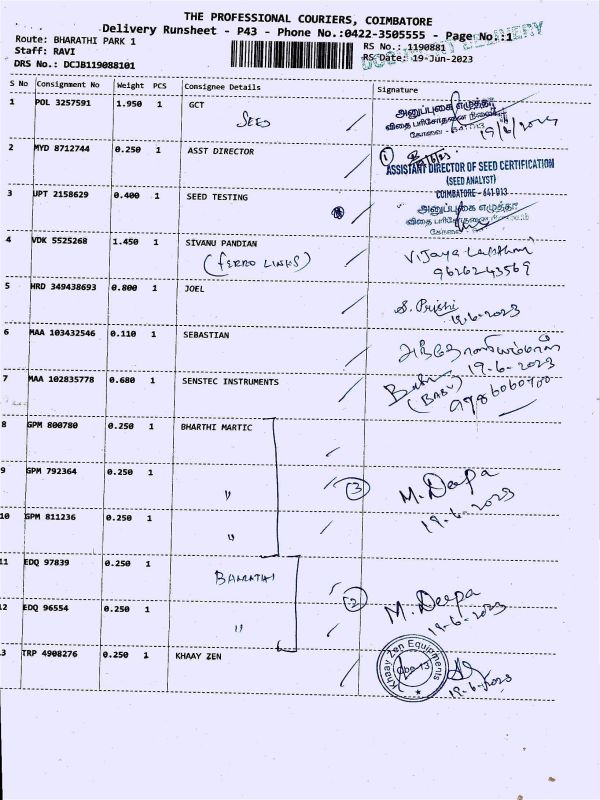 THE PROFESSIONAL COURIERS, COIMBATORE
Delivery Runsheet - P43 - Phone No.:0422-3505555 - Page No.:1
Route: BHARATHI PARK 1
RS No.: 1190881
Staff: RAVI
RS Date: 19-Jun-2023
DRS No.: DCJB119088101
S No Consignment No Weight PCS Consignee Details Signature
1 POL 3257591 1.950 1 GCT
SEED
அனுப்புகை எழுத்தர்
விதை பரிசோதனை நிலையம்
19/6/2023
2 MYD 8712744 0.250 1 ASST DIRECTOR
1
ASSISTANT DIRECTOR OF SEED CERTIFICATION
(SEED ANALYST)
COIMBATORE - 641 013
3 UPT 2158629 0.400 1 SEED TESTING
அனுப்புகை எழுத்தர்
விதை பரிசோதனை நிலையம்
கோவை
4 VDK 5525268 1.450 1 SIVANU PANDIAN
(FERRO LINKS)
Vijaya Lakshmi
9626243569
5 HRD 349438693 0.800 1 JOEL
S. Prishi
19.6.2023
6 MAA 103432546 0.110 1 SEBASTIAN
19-6-2023
7 MAA 102835778 0.680 1 SENSTEC INSTRUMENTS
Babu
(BABU)
8 GPM 800780 0.250 1 BHARTHI MARTIC
9 GPM 792364 0.250 1 "
3
M. Deepa
19-6-2023
10 GPM 811236 0.250 1 "
11 EDQ 97839 0.250 1 BHARATHI
2
M. Deepa
19-6-2023
12 EDQ 96554 0.250 1 "
13 TRP 4908276 0.250 1 KHAAY ZEN
Khaay Zen Equipments
Cbe-13
19.6.2023